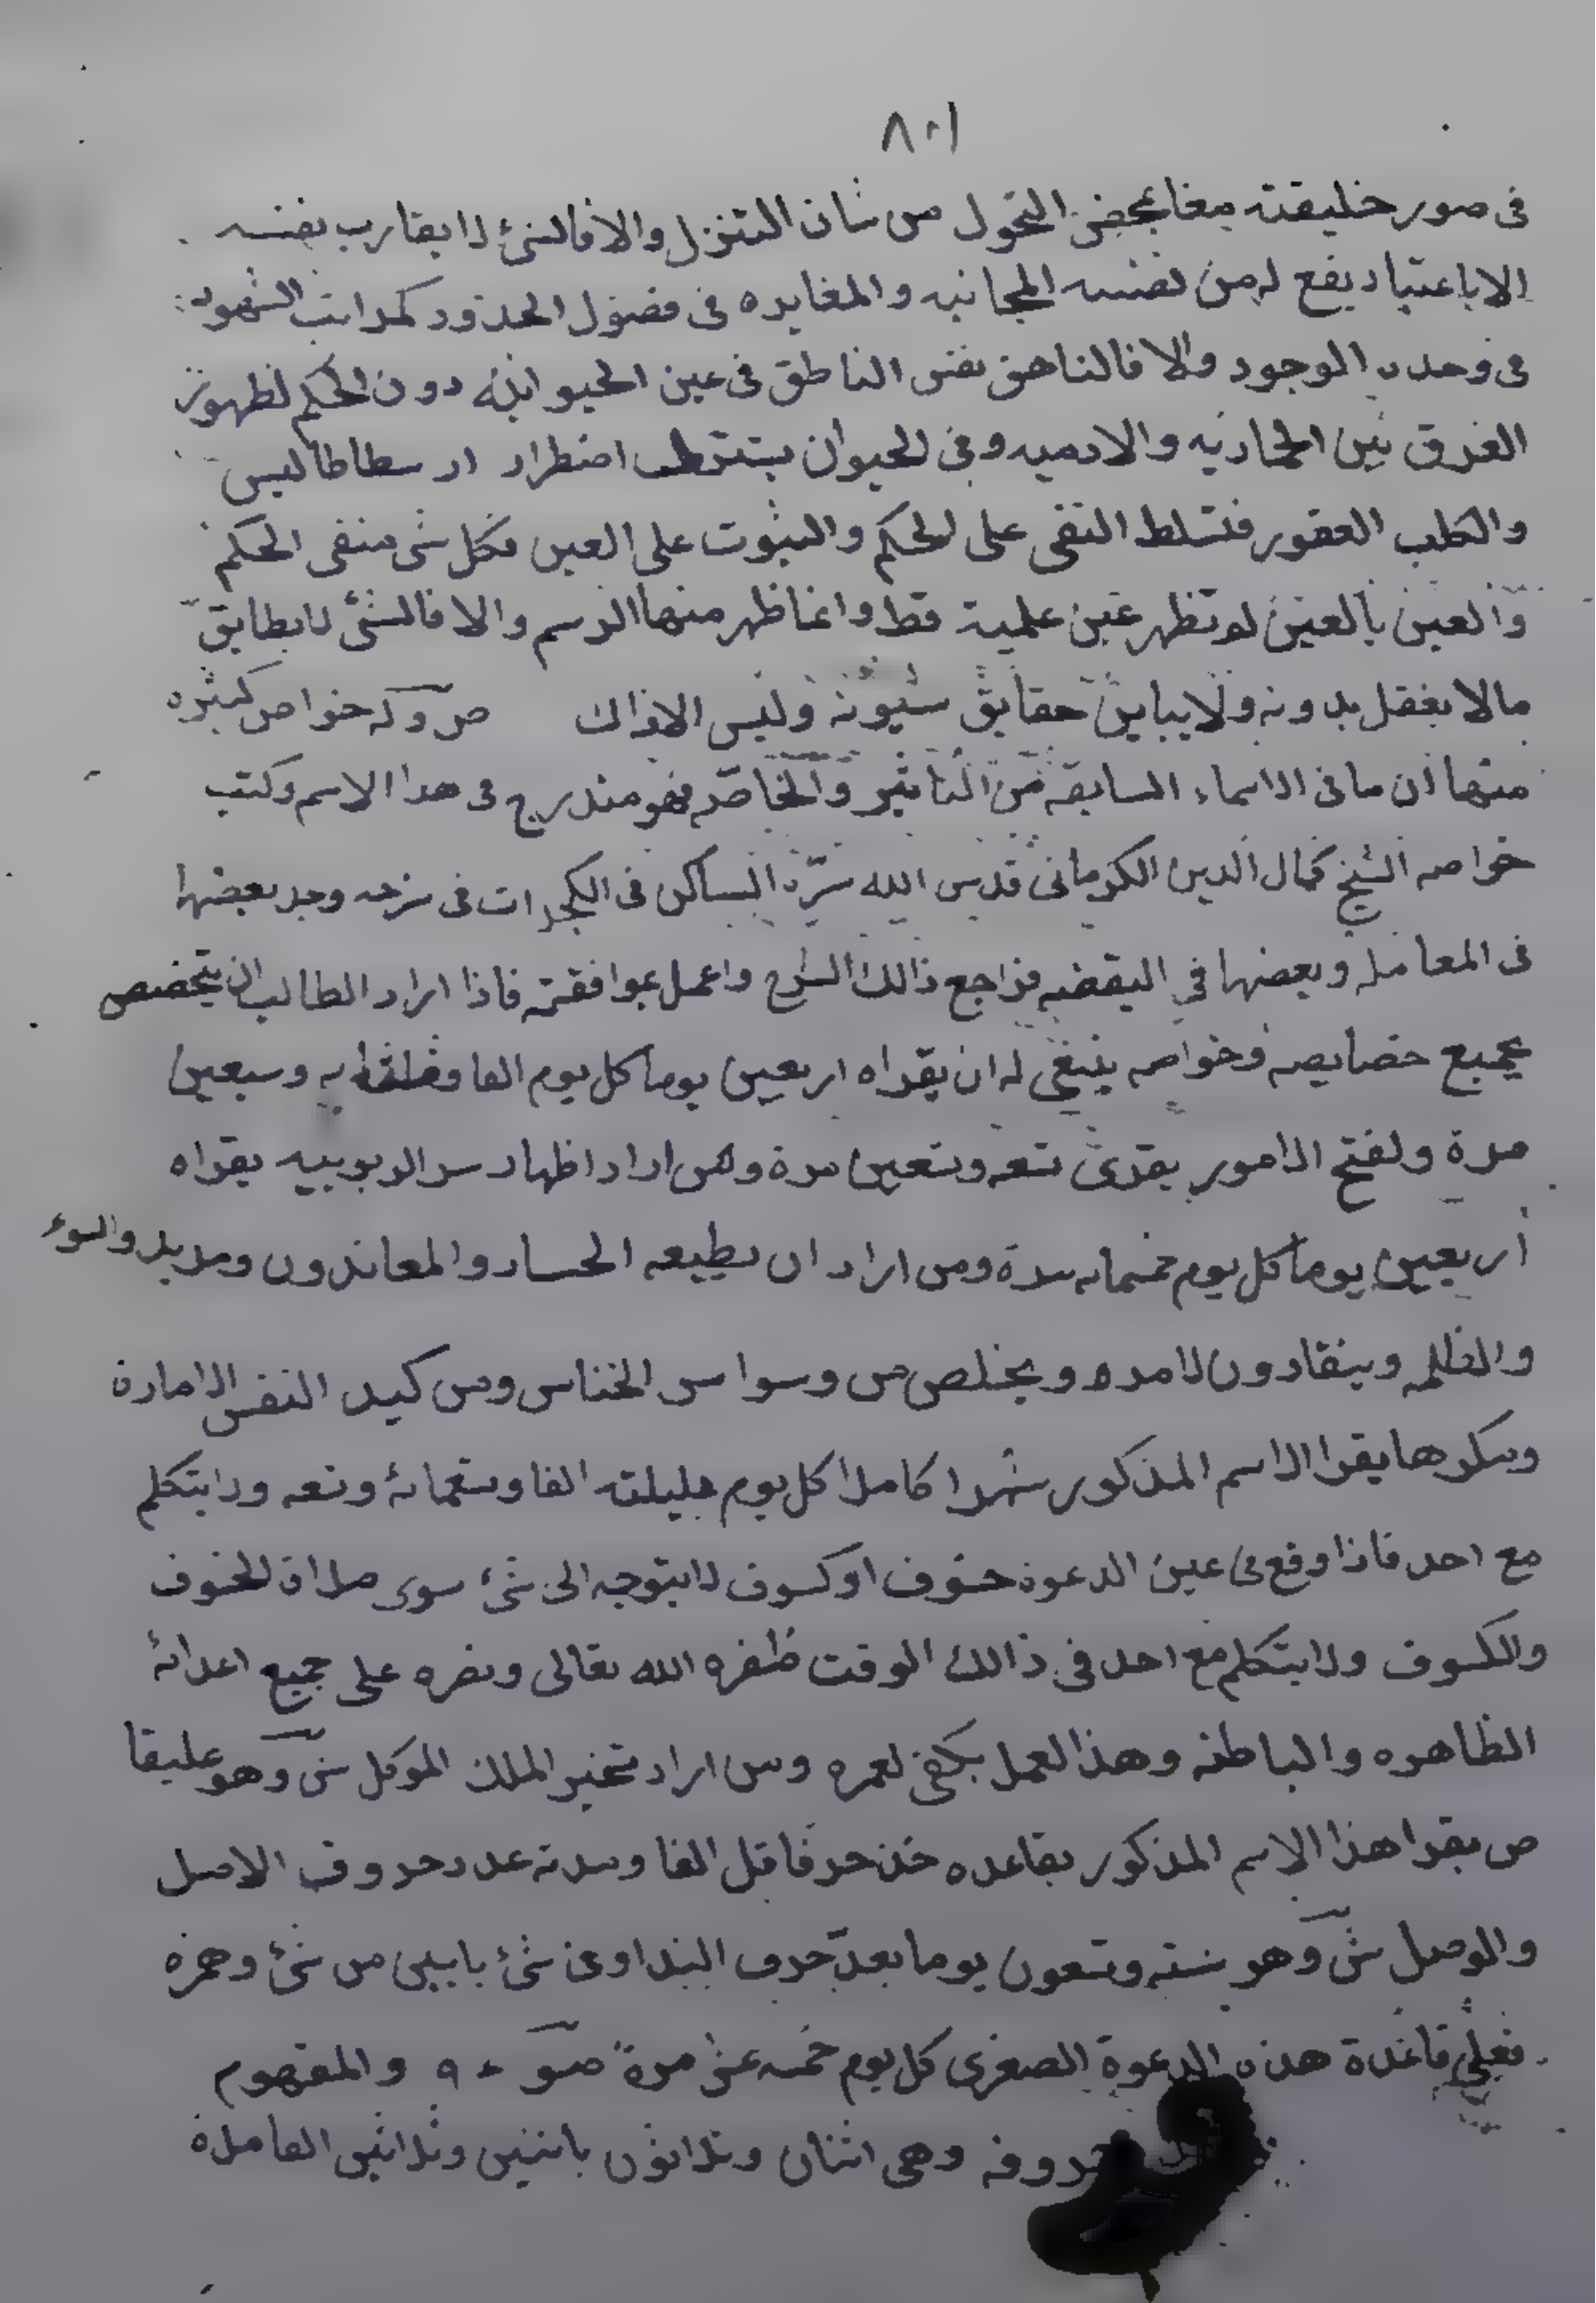 ٨٠١
فى صور خليقته معا محض التحول من شان التنزل والا فالشئ لا يقارب بنفسه
الا باعتبار يقع له من نفسه المجانيه والمغايره فى فضول الحدود كمراتب الشهود
فى وحدة الوجود والا فالناهق نفس الناطق فى عين الحيوانيه دون الحكم لظهور
الفرق بين الحماريه والادميه وفى الحيوان يشترط اضطرار ارسطاطاليس
والكلب العقور فتسلط النفى على الحكم والثبوت على العين فكل شى منفى الحكم
والعين بالعين لم تظهر عين علمية قط وانما ظهر منها الرسم والا فالشئ لا يطابق
مالا يعقل بدونه ولا يباين حقايق شيونه وليس الا ذاك ص وله خواص كثيره
منها ان ما فى الاسماء السابقه من التاثير والخاصه فهو مندرج فى هذا الاسم وكتب
خواصه الشيخ كمال الدين الكرمانى قدس الله سره الساكن فى الكجرات فى شرحه وجد بعضها
فى المعامله وبعضها في اليقضه فراجع ذالك الشرح واعمل بموافقته فاذا اراد الطالب ان يتخصص
بجميع خصايصه وخواصه ينبغى له ان يقراه اربعين يوما كل يوم الفا وسبعين
مرة ولفتح الامور يقرى تسعه وتسعين مرة ومن اراد اظهار سر الربوبيه يقراه
اربعين يوما كل يوم خمسمايه مرة ومن اراد ان يطيعه الحساد والمعاندون
والظلمه وينقادون لامره ويخلص من وسواس الخناس ومن كيد النفس الامارة
ومكرها يقرا الاسم المذكور شهرا كاملا كل يوم بليلته الفا وستمائة وتسعه ولا يتكلم
مع احد فاذا وقع فى عين الدعوة خسوف او كسوف لا يتوجه الى شئ سوى صلاة الخسوف
والكسوف ولا يتكلم مع احد فى ذالك الوقت ظفره الله تعالى ونصره على جميع اعدائه
الظاهره والباطنه وهذا العمل يكفى لعمره ومن اراد تسخير الملك الموكل ش وهو عليقا
ص يقرا هذا الاسم المذكور بقاعده خذ حرفا قل الفا ومدته عدد حروف الاصل
والوصل ش وهو سته وتسعون يوما بعد حرف الندا وعن شئ بابين من شئ وهمزه
فعلى قاعدة هذه الدعوة الصغرى كل يوم خمسه عشر مرة ص ٩٠ والمفهوم
حروفه وهى اثنان وثلاثون باثنين وثلاثين الفا صلاة